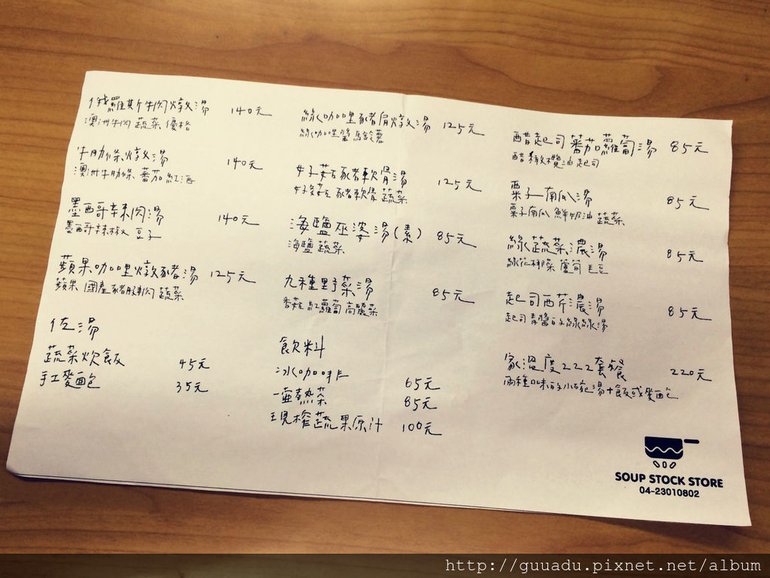 俄羅斯牛肉燉湯 140元
澳洲牛肉 蔬菜 優格
牛肋條燉湯 140元
澳洲牛肋條 番茄 紅酒
墨西哥辣肉湯 140元
墨西哥辣椒 豆子
蘋果咖哩燉豬湯 125元
蘋果 國產豬腱肉 蔬菜
佐湯
蔬菜炊飯 45元
手工麵包 35元
綠咖哩豬肩燉湯 125元
綠咖哩醬 馬鈴薯
好菇豬軟骨湯 125元
好菇 豬軟骨 蔬菜
海鹽巫婆湯(素) 85元
海鹽 蔬菜
九種野菜湯 85元
香菇 紅蘿蔔 高麗菜
飲料
冰咖啡 65元
一壺熱茶 85元
現榨蔬果原汁 100元
醋起司蕃茄蘿蔔湯 85元
醋 橄欖油 起司
栗子南瓜湯 85元
栗子 南瓜 鮮奶油 蔬菜
綠蔬菜濃湯 85元
綠花椰菜 蘆筍 毛豆
起司西芹濃湯 85元
起司 青醬
家溫度222套餐 220元
兩種味的小碗湯+飯或麵包
SOUP STOCK STORE
04-23010802
http://guuadu.pixnet.net/album